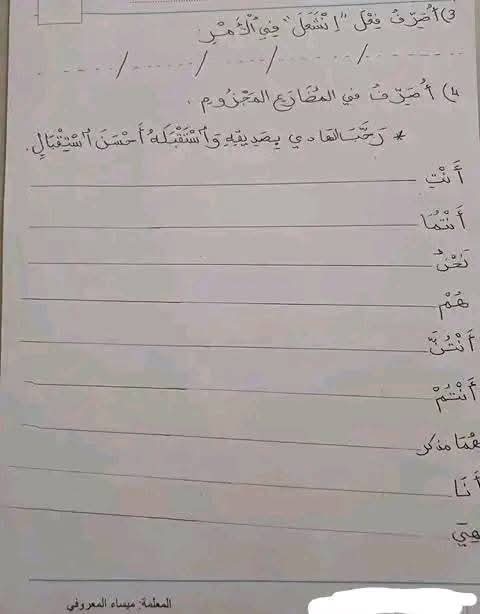 3) أُصَرِّفُ فِعْلَ "اِنْشَغَلَ" فِي الْأَمْرِ.
/ / / /
4) أُصَرِّفُ في المُضَارِعِ المَجْزُومِ.
* رَحَّبَ الهَادي بِصَدِيقِهِ وَاسْتَقْبَلَهُ أَحْسَنَ اسْتِقْبَالٍ.
أَنْتِ
أَنْتُمَا
نَحْنُ
هُمْ
أَنْتُنَّ
أَنْتُمْ
هُمَا مذكر
أَنَا
هِيَ
المعلمة: ميساء المعروفي